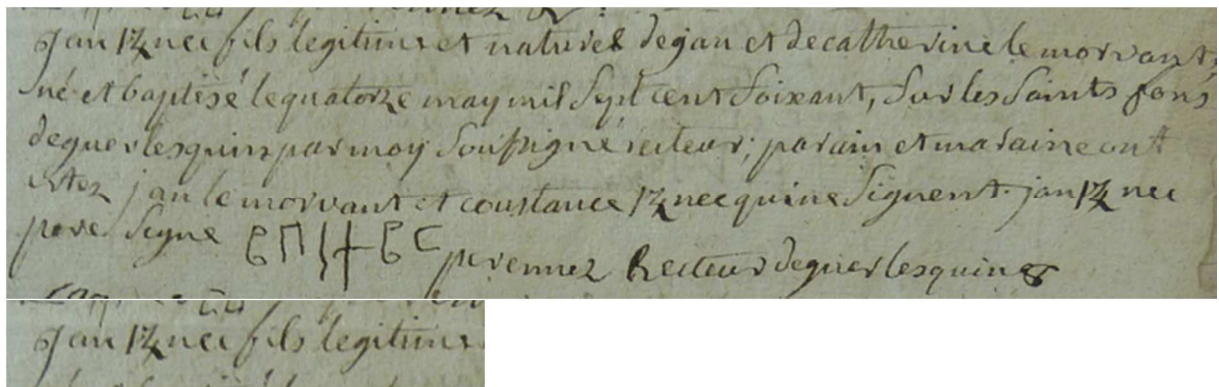 jan 12nec fils legitime et naturel de jan et de catherine le morvant,
né et baptisé le quatorze may mil sept cent soixant, sur les saints fons
de guerlesquin par moy soussigné recteur; parain et maraine ont
estez jan le morvant et constance 12nec qui ne signent. jan 12nec
pere signe perennez Recteur de guerlesquin
jan 12nec fils legitime